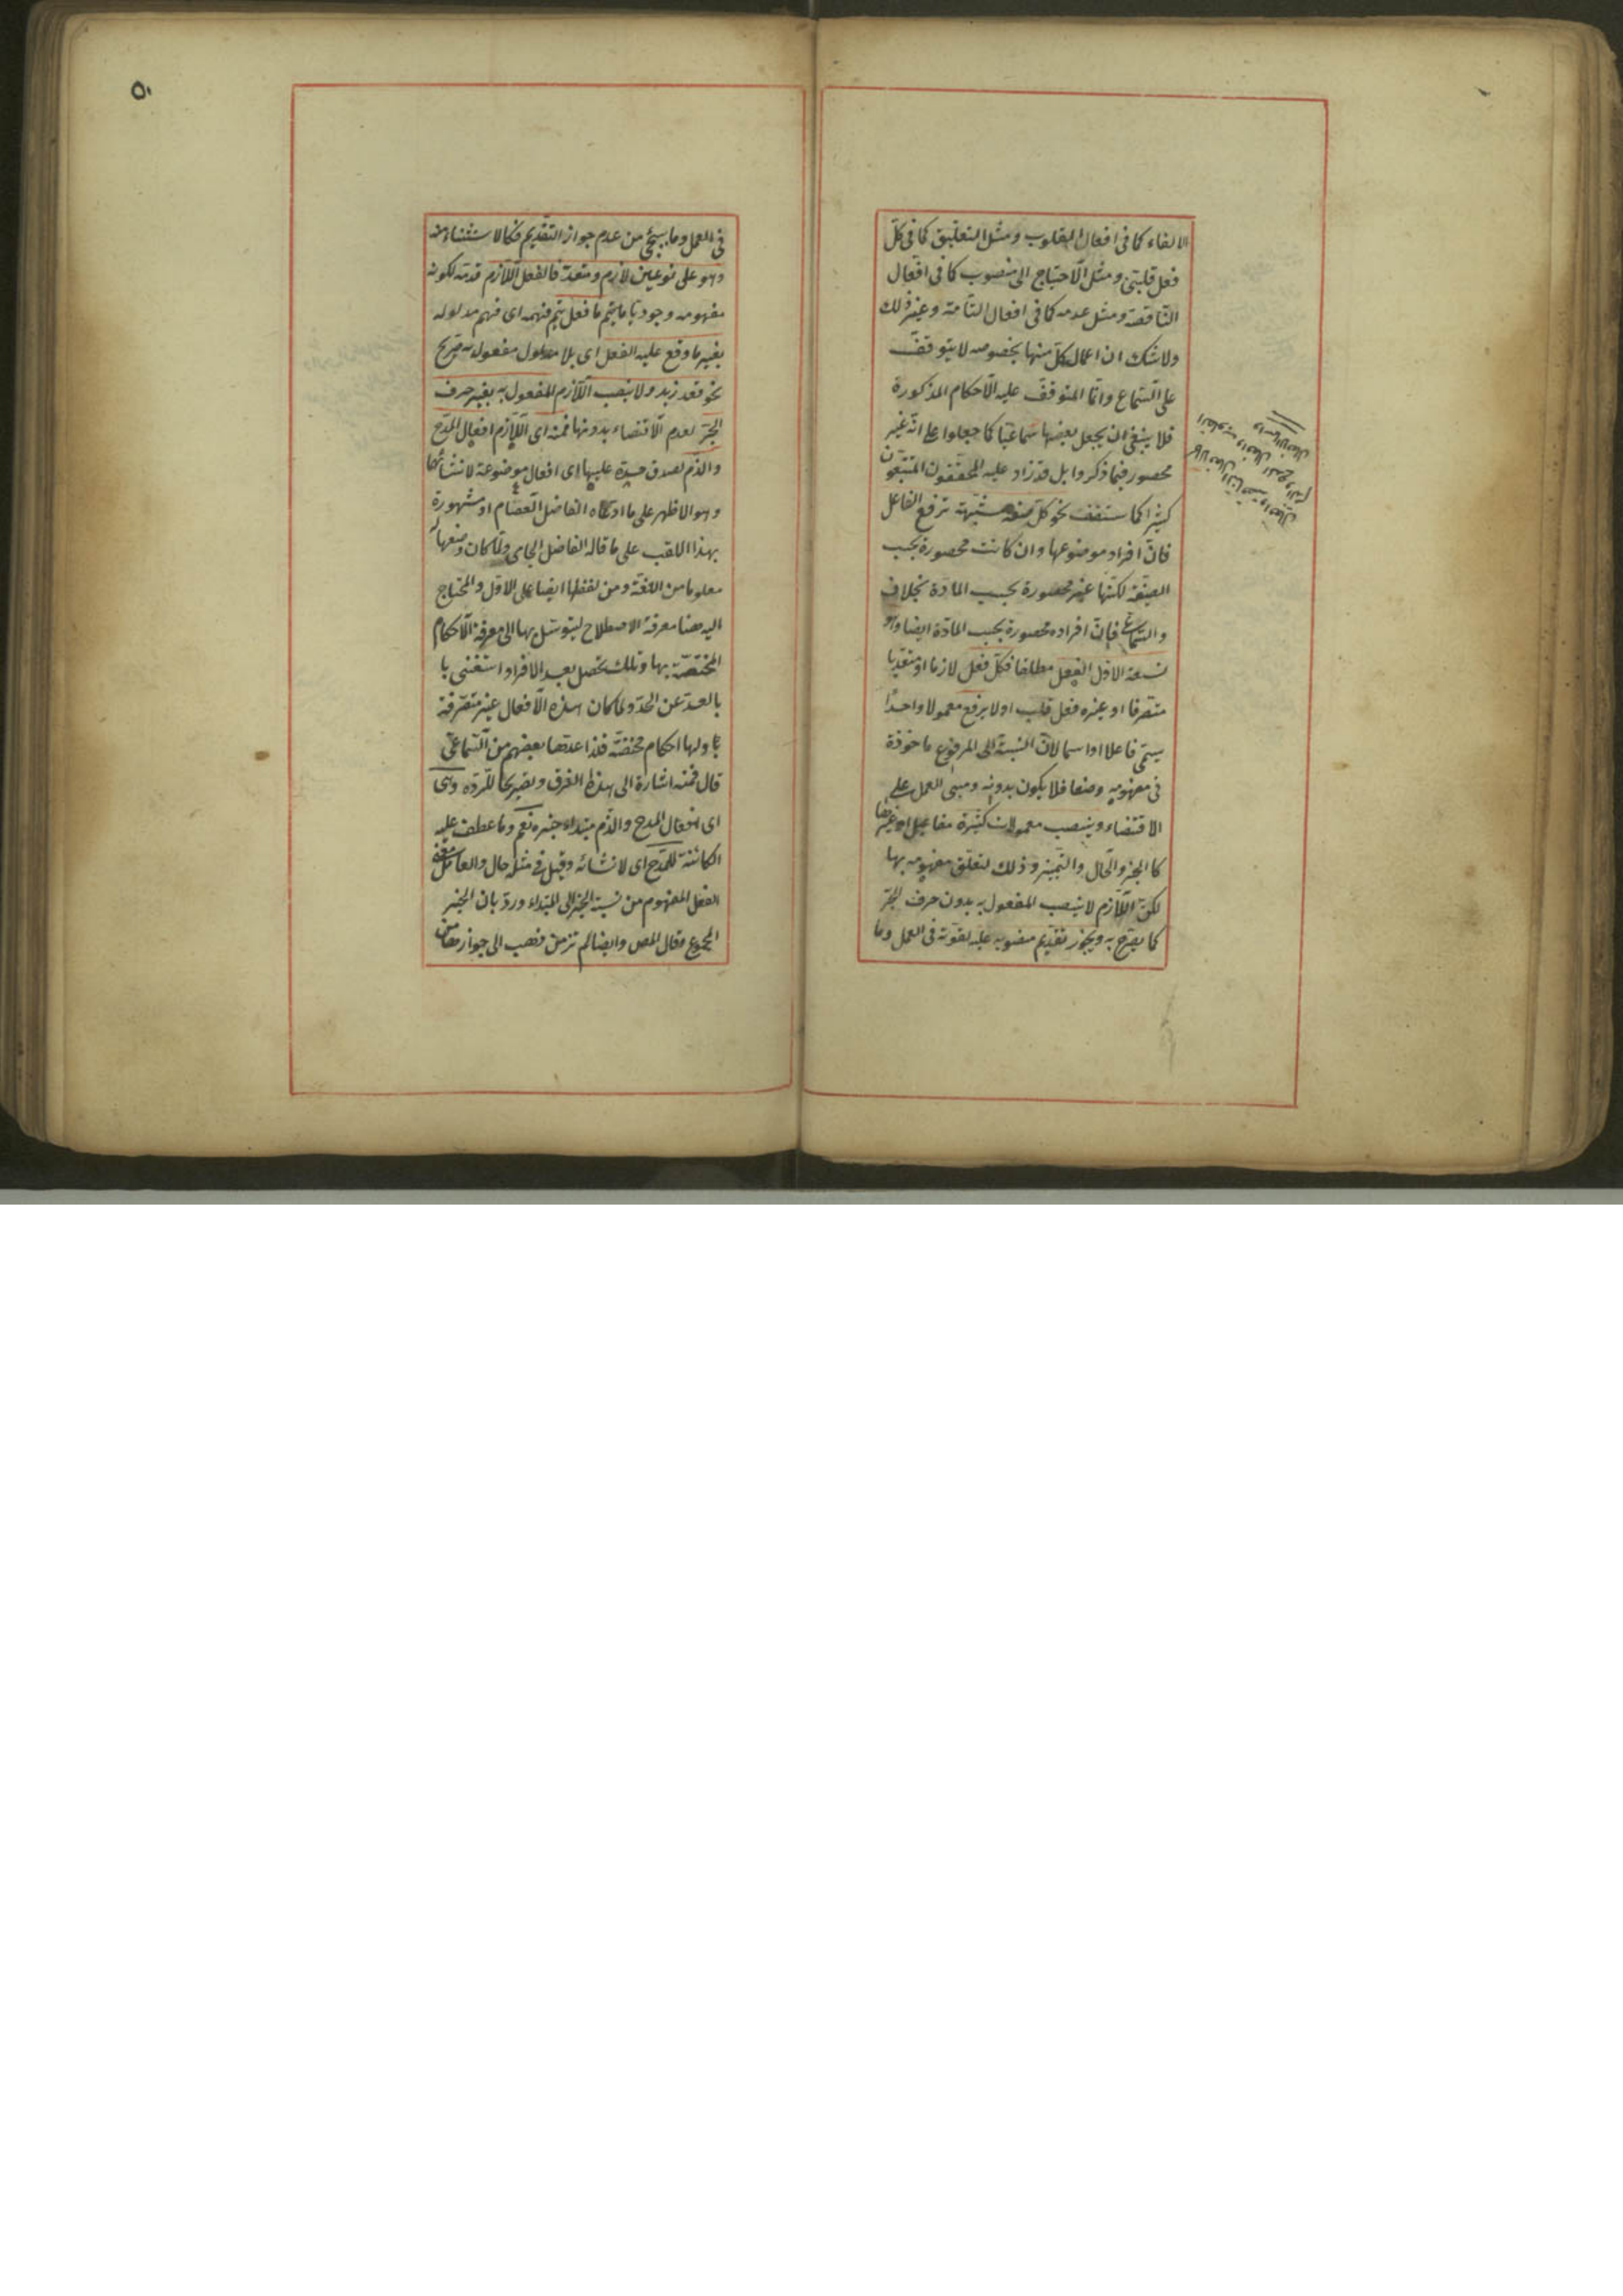 الالغاء كما فى افعال القلوب ومثل التعليق كما فى كل
فعل قلبىّ ومثل الاحتياج الى منصوب كما فى افعال
الناقصة ومثل عدمه كما فى افعال التامة وغير ذلك
ولا شك ان اعمال كل منها بخصوصه لا يتوقف
على السماع وانما المتوقف عليه الاحكام المذكورة
فلا ينبغى ان يجعل بعضها سماعيا كما جعلوا على انه غير
محصور فيما ذكروا بل قد زاد عليه المحققون المتتبعون
كثيرا كما ستقف نحو كل صفة مشبهة ترفع الفاعل
فان افراد موضوعها وان كانت محصورة بحسب
الصيغة لكنها غير محصورة بحسب المادة بخلاف
والسماعى فان افراده محصورة بحسب المادة ايضا وهو
تسعة الاول الفعل مطلقا فكل فعل لازما او متعديا
متصرفا او غيره فعل قلب اولا يرفع معمولا واحدا
يسمى فاعلا او اسما لان النسبة الى المرفوع ماخوذة
فى مفهومه وضعا فلا يكون بدونه ومبنى العمل على
الاقتضاء وينصب معمولات كثيرة مفاعيل او غيرها
كالخبر والحال والتمييز وذلك لتعلق مفهومه بها
لكن اللازم لا ينصب المفعول به بدون حرف الجر
كما يصرح به ويجوز تقديم منصوبه عليه لقوته فى العمل وما
٥٠
فى العمل وما سيجئ من عدم جواز التقديم فكالاستثناء منه
وهو على نوعين لازم ومتعد فالفعل اللازم قدمه لكونه
مفهومه وجوديا ما يتم ما فعل يتم فهمه اى فهم مدلوله
بغير ما وقع عليه الفعل اى بلا مدلول مفعول به صريح
نحو قعد زيد ولا ينصب اللازم المفعول به بغير حرف
الجر لعدم الاقتضاء بدونها فمنه اى اللازم افعال المدح
والذم لصدق حده عليها اى افعال موضوعة لانشائهما
وهو الاظهر على ما ادعاه الفاضل العصام او مشهورة
بهذا اللقب على ما قاله الفاضل الجامى ولما كان وضعها له
معلوما من اللغة ومن لفظها ايضا على الاول والمحتاج
اليه هنا معرفة الاصطلاح ليتوسل بها الى معرفة الاحكام
المختصة بها وتلك تحصل بعد الافراد استغنى با
بالعد عن الحد ولما كان هذه الافعال غير متصرفة
ولها احكام مختصة فلذا عدها بعضهم من السماعى
قال فمنه اشارة الى هذا الفرق وتصريحا للرد وهى
اى افعال المدح والذم مبتداء خبره نعم وما عطف عليه
الكائنة للمدح اى لانشائه وقيل فى مثله حال والعامل معنى
الفعل المفهوم من نسبة الخبر الى المبتداء ورد بان الخبر
المجموع فقال المص وايضا لم نر من ذهب الى جواز